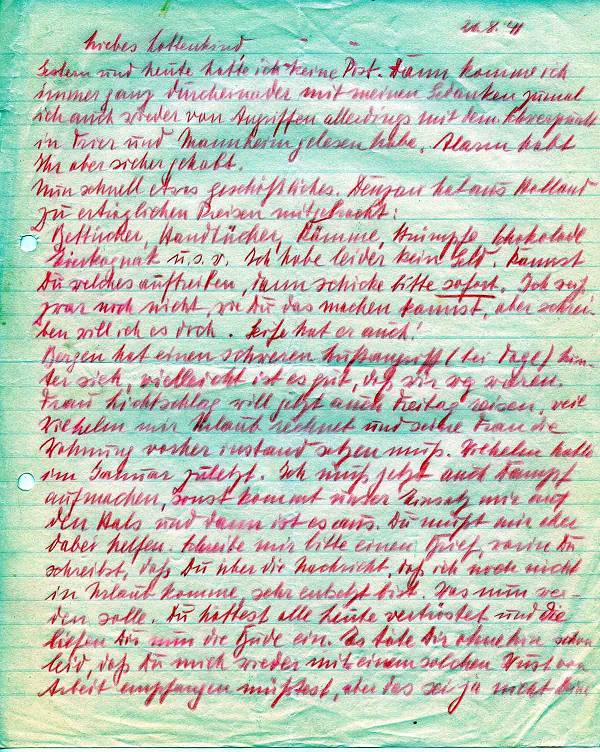 20.8.41
Liebes Lottenkind,
Gestern und heute hatte ich keine Post. Dann komme ich
immer ganz durcheinader mit meinen Gedanken zumal
ich auch wieder von Angriffen allerdings mit dem
in Trier und Mannheim gelesen habe. Alarm habt
Ihr aber sicher gehabt.
Nun schnell etwas geschäftliches. hat aus Holland
zu erträglichen Preisen mitgebracht:
Bettücher, Handtücher, Kämme, Strümpfe Schokolade
Eierkognak u.s.w. Ich habe leider kein Geld. Kannst
Du welches auftreiben, dann schicke bitte sofort. Ich weiß
zwar noch nicht, wie Du das machen kannst, aber schrei-
ben will ich es doch. Seife hat er auch!
Bergen hat einen schweren Luftangriff (bei Tage) hin-
ter sich, vielleicht ist es gut, daß wir weg waren.
Frau Lichtschlag will jetzt auch Freitag reisen, weil
Wilhelm mir Urlaub rechnet und seine Frau die
Wohnung vorher instand setzen muß. Wilhelm hatte
im Januar zuletzt. Ich muß jetzt auch Dampf
aufmachen, sonst kommt unser Einsatz mir auf
den Hals und dann ist es aus. Du mußt mir aber
dabei helfen. Schreibe mir bitte einen Brief, worin Du
schreibst, daß Du über die Nachricht, daß ich noch nicht
in Urlaub komme, sehr entsetzt bist. Was nun wer-
den solle. Du hättest alle heute vertröstet und die
liefen Dir nun die Bude ein. Es täte Dir ohnehin schon
leid, daß Du mich wieder mit einem solchen Wust von
Arbeit empfangen müßtest, aber das sei ja nicht Deine